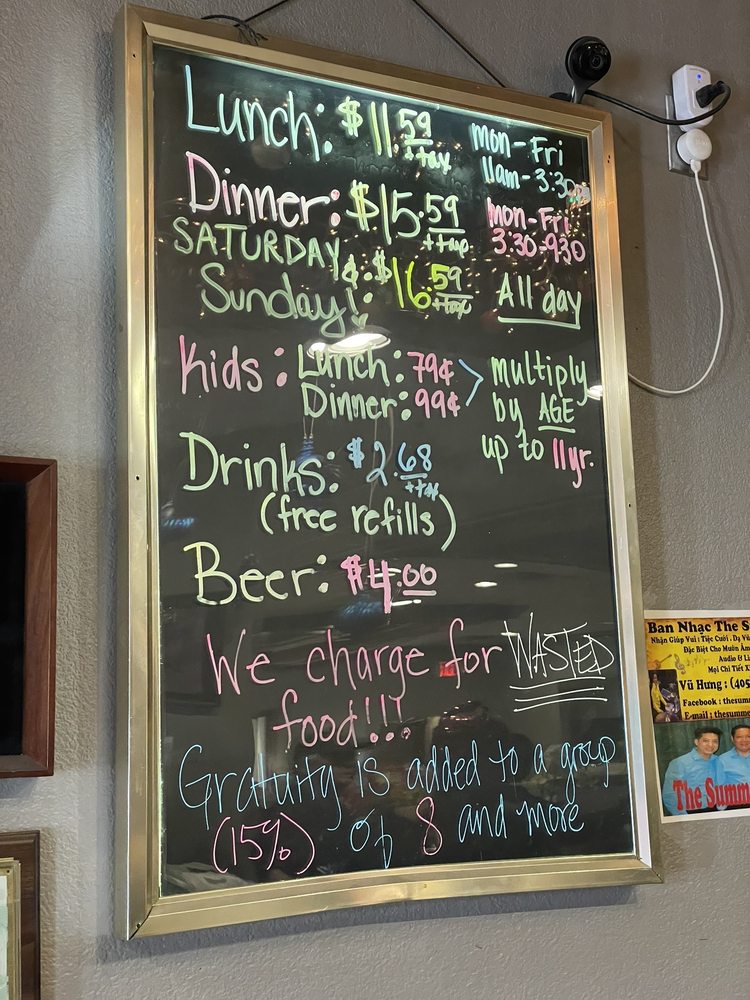 Lunch: $11.59 ++tax mon-Fri 11am-3:30pm
Dinner: $15.59 ++tax mon-Fri 3:30-9:30
SATURDAY & Sunday!: $16.59 ++tax All day
Kids: Lunch: 79¢ > multiply
Dinner: 99¢ by AGE
up to 11yr.
Drinks: $2.68 ++tax
(free refills)
Beer: $4.00
We charge for WASTED
food!!!
Gratuity is added to a group
(15%) of 8 and more
Ban Nhạc The S
Nhận Giúp Vui : Tiệc Cưới . Dạ Vũ
Đặc Biệt Cho Mướn Âm
Audio & Li
Mọi Chi Tiết X
Vũ Hưng : (405
Facebook : thesumm
E-mail : thesumme
The Summ